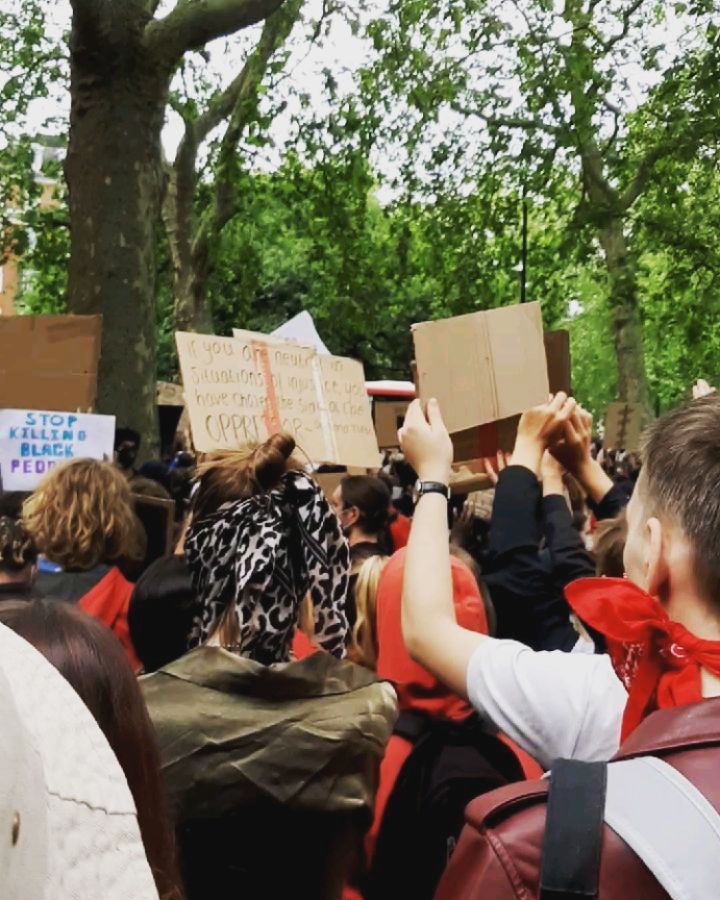 STOP
KILLING
BLACK
If you are neutral in
situations of injustice, you
have chosen the side of the
OPPRESSOR